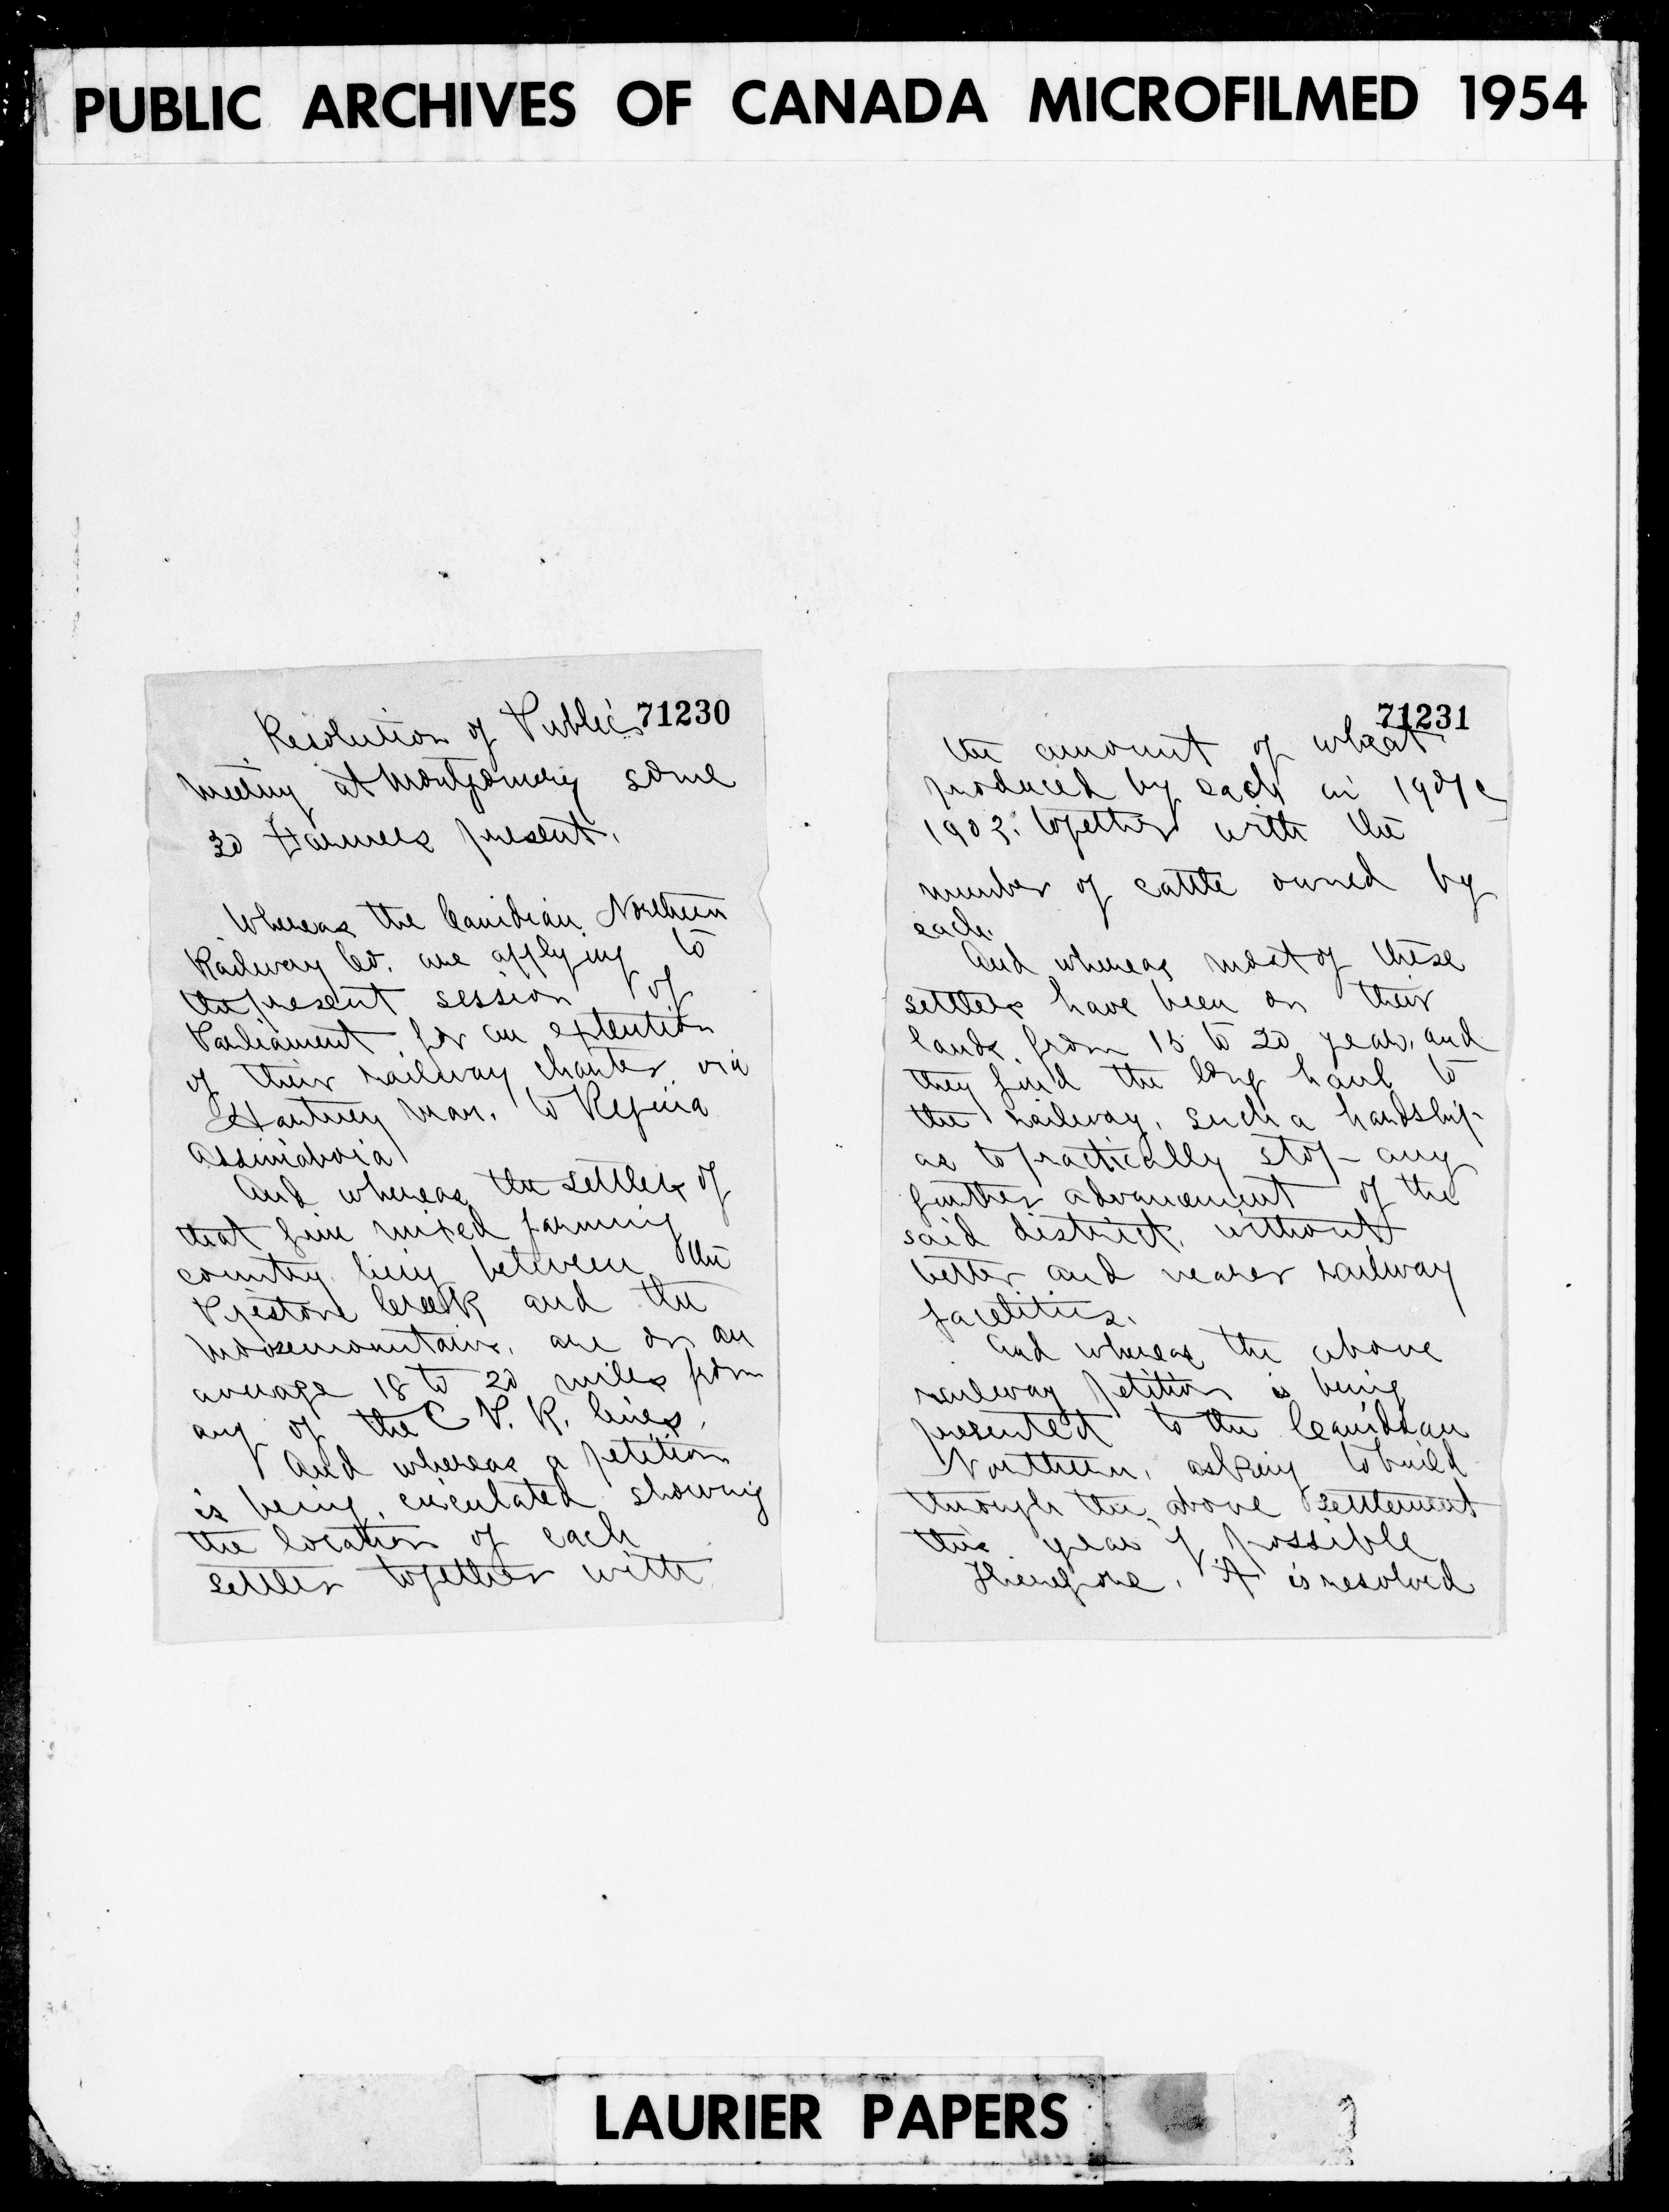 PUBLIC ARCHIVES OF CANADA MICROFILMED 1954
71230
Resolution of Public
meeting at Montgomery some
30 Farmers present.
Whereas the Canidian Northern
Railway Co. are applying to
the present session of
Parliament for an extention
of their railway charter via
Hartney Man. to Regina
Assiniaboia
And whereas the settlers of
that fine mixed farming
country lieing between the
Pipestone Creek and the
Moosemountains, are on an
average 18 to 20 miles from
any of the C P. R. lines.
And whereas a petition
is being circulated showing
the location of each
settler together with
71231
the amount of wheat
produced by each in
1902. together with the
number of cattle owned by
each.
And whereas most of these
settlers have been on their
lands from 15 to 20 years, and
they find the long haul to
the railway, such a hardship
as to practically stop any
further advancement of the
said district, without
better and nearer railway
facilities.
And whereas the above
railway petition is being
presented to the Canidian
Northern, asking to build
through the above settlement
this year if possible
Therefore, it is resolved
LAURIER PAPERS